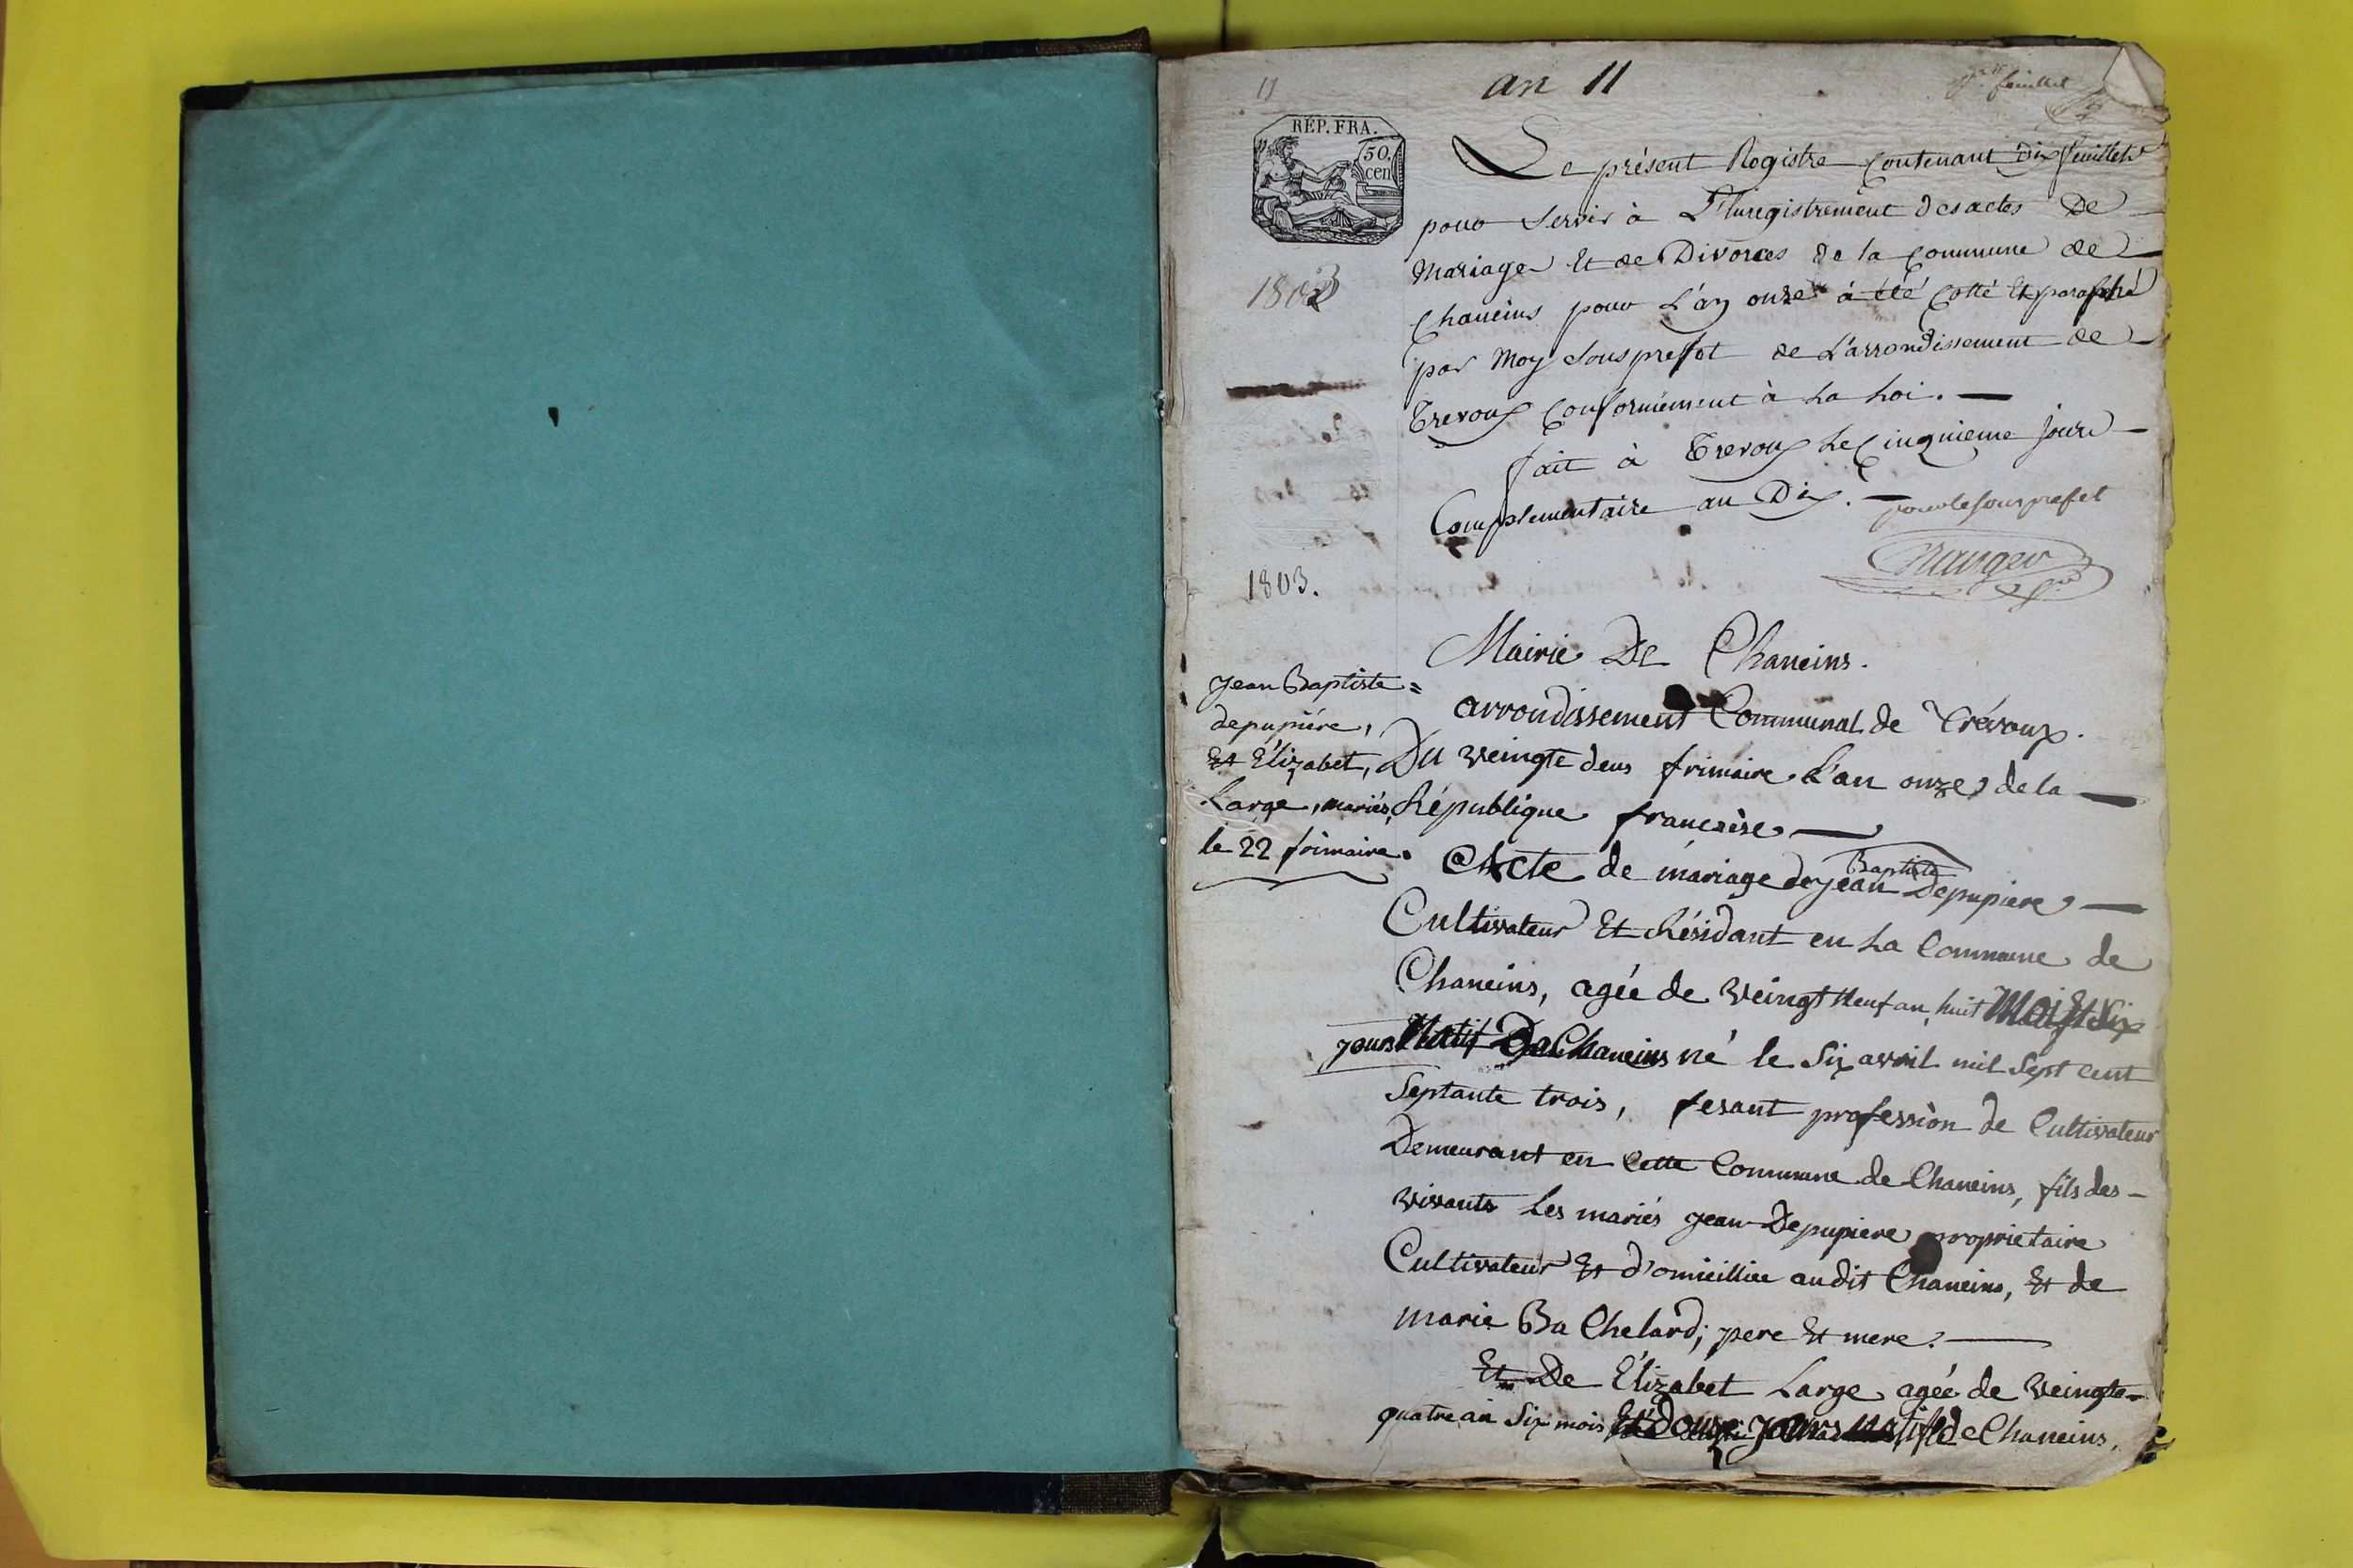 11
an 11
feuillet
RÉP. FRA.
50.
cen
Le présent Registre Contenant Dix feuillets
pour Servir à L'Enregistrement des actes De
Mariage Et de Divorces de la Commune de
Chaneins pour L'an onze à été Cotté Et paraphé
par Moy Sous prefet de L'arrondissement de
Trevoux Conformément à La Loi.
1803
fait à Trevoux Le Cinquieme jour
Complementaire an Dix.
pour le sous prefet
1803.
Mairie De Chaneins.
arrondissement Communal de Trévoux.
Jean Baptiste =
depupiére,
Et Élizabet,
Large, mariés,
le 22 frimaire.
Du veingte deus frimaire L'an onze de la
République francaise
Acte de mariage de jean Baptiste Depupiere
Cultivateur Et Résidant en La Commune de
Chaneins, agée de veingt neuf an, huit Mois Et Six
jours Natif De Chaneins né le Six avril mil Sept cent
Septante trois, fesant profession de Cultivateur
Demeurant en Cette Commune de Chaneins, fils des
vivants Les mariés jean Depupiere proprietaire
Cultivateur Et d'omicilliee audit Chaneins, Et de
marie Ba Chelard; pere Et mere.
Et De Élizabet Large agée de veingte
quatre an Six mois Et douze jours natif de Chaneins,